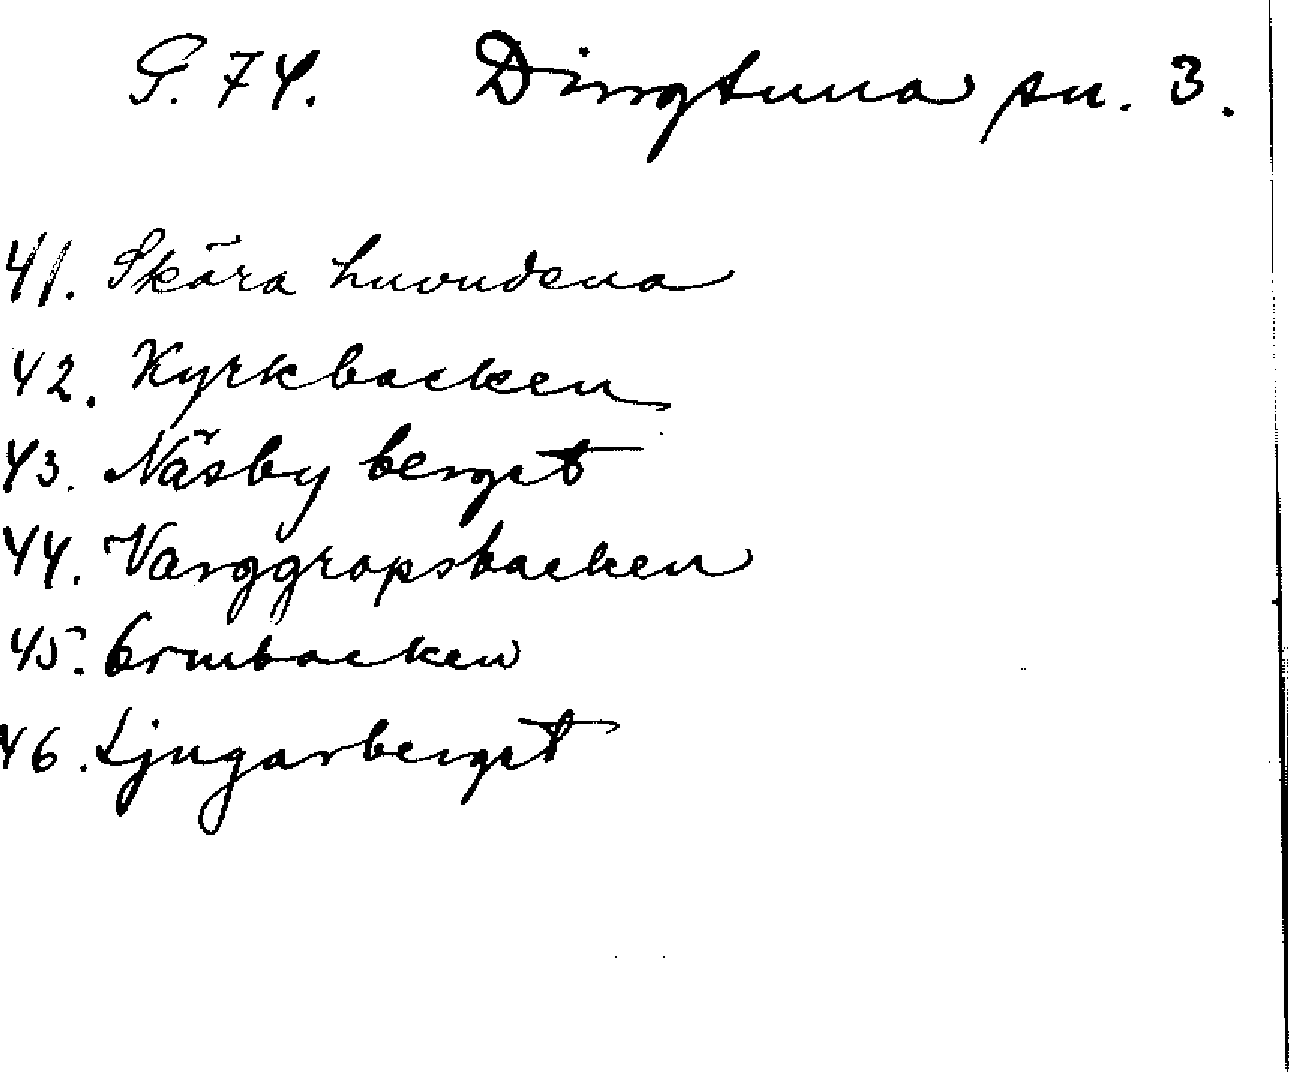 G. 74. Dingtuna sn. 3.
41. Skära huvudena
42. Kyrkbacken
43. Näsby berget
44. Varggropsbacken
45. Ormbacken
46. Ljugarberget